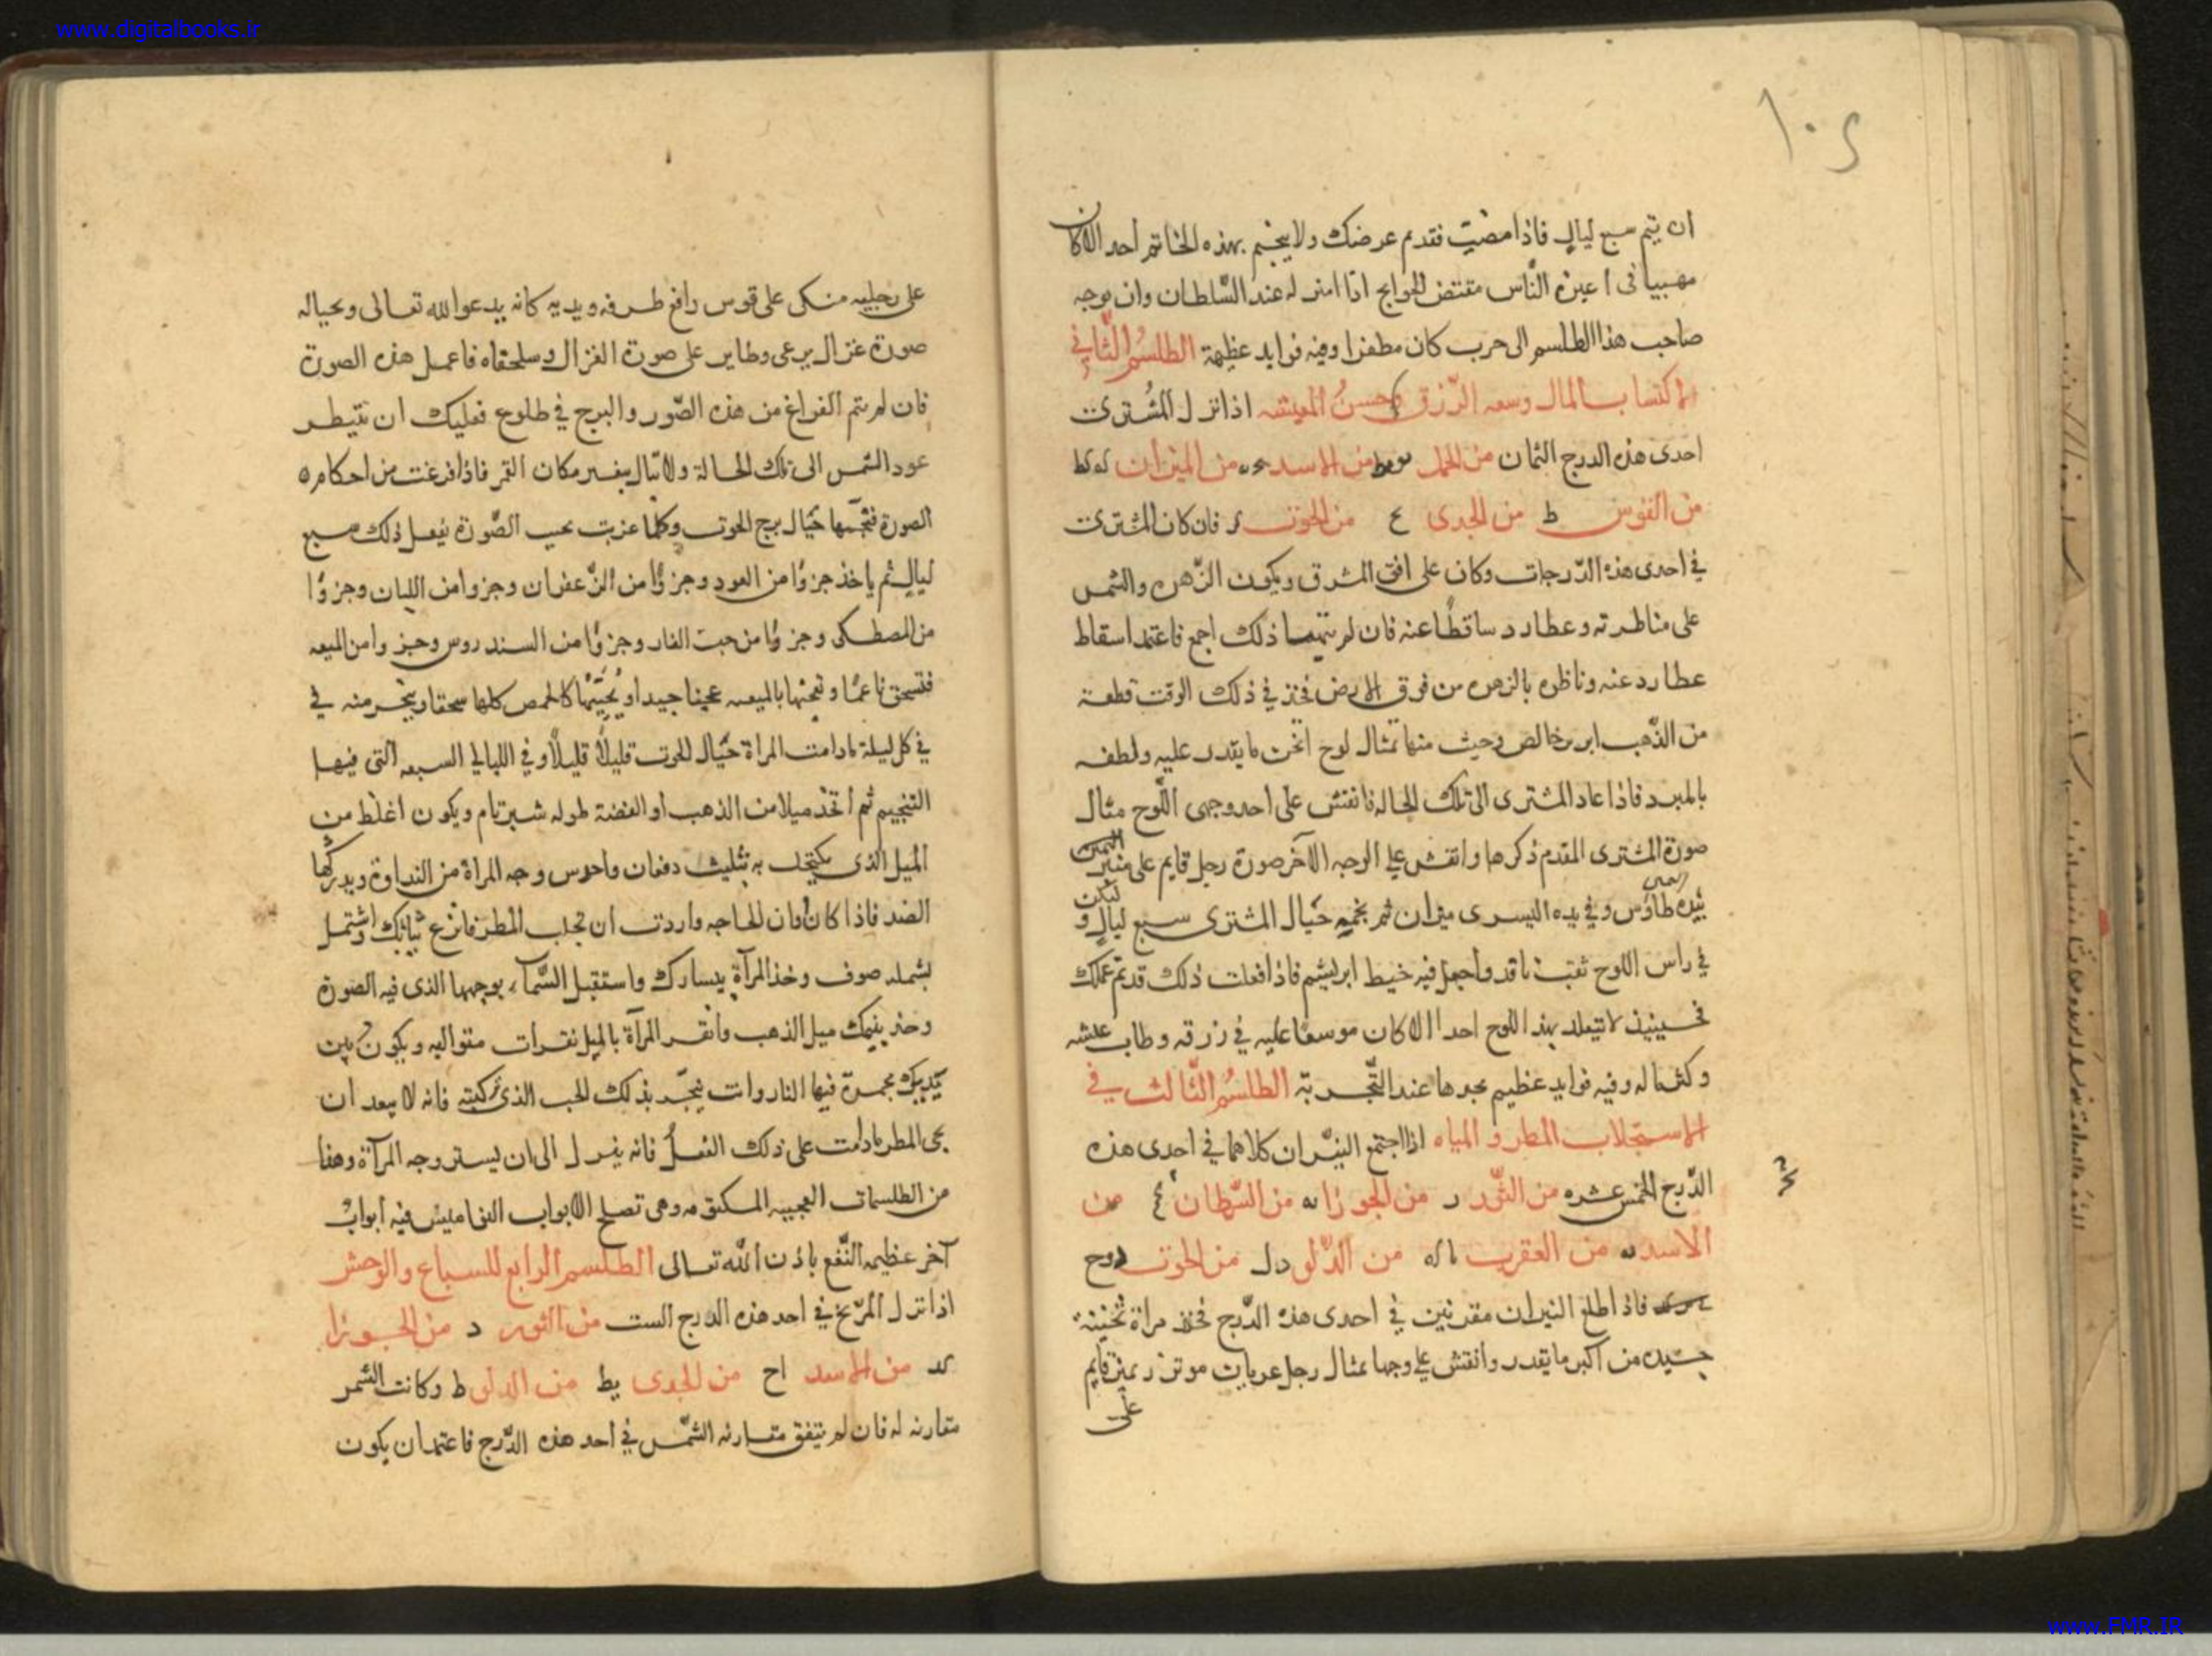 www.digitalbooks.ir
ان يتم سبع ليالٍ فاذا مضيت فقدتم عرضك ولا يختم بهذه الخاتم احد الا كان
مهيبا فى اعين النّاس مقتض الحوايج اذا امتر له عند السّلطان وان توجه
صاحب هذا الطلسم الى حرب كان مظفرا وفيه فوايد عظيمة الطلسُم الثَّانى فى
الاكتساب بالمال وسعه الرّزق وحسنُ المعيشه اذا نزل المُشترى
احدى هذه الدرج الثمان من الحمل من الاسد من الميزان كه كط
من القوس ط من الجدى ع من الحوت فان كان المشترى
فى احدى هذه الدّرجات وكان على افق المشرق ويكون الزّهره والشمس
على مناظرته وعطارد ساقطًا عنه فان لم ذلك اجمع فاعتمد اسقاط
عطارد عنه وناظره بالزهره من فوق الارض فخذ فى ذلك الوقت قطعة
من الذّهب ابريز خالص منها تمثال لوح اثخن ما يقدر عليه ولطفه
بالمبرد فاذا عاد المشترى الى تلك الحاله فانقش على احد وجهى اللّوح مثال
صورة المشترى المقدم ذكرها وانقش على الوجه الآخر صورة رجل قايم على منبر
بيده اليمنى طاؤس وفى يده اليسرى ميزان ثم نجمه حيال المشترى سبع ليالٍ وليكن
فى راس اللوح ثقب نافد واجعل فيه خيط ابريشم فاذا فعلت ذلك قد تم عملك
فحينيذ لا يتقلد بهذا اللوح احدا الا كان موسعًا عليه فى رزقه وطاب عيشه
وكثر ماله وفيه فوايد عظيم يجدها عند التّجربة الطلسُم الثَّالث فى
الاستجلاب المطر والمياه اذا اجتمع النيّران كلاهما فى احدى هذه
الدّرج الخمس عشره من الثّور د من الجوزا يه من السّرطان من
الاسد يه من العقرب من الدّلو من الحوت
فاذا طلع النيران مقترنين فى احدى هذه الدّرج فخذ مراة ثخينة
من اكبر ما يقدر وانقش على وجهها تمثال رجل عريان موتزر بميزر قايم
على
على رجليه متكى على قوس رافع طرفه ويديه كانه يدعو الله تعالى وبحياله
صورة غزال يرعى وطاير على صورة الغزال وسلحفاه فاعمل هذه الصورة
فان لم يتم الفراغ من هذه الصّور والبرج فى طلوع فعليك ان تنتظر
عود الشمس الى تلك الحالة ولا تبال بغير مكان القمر فاذا فرغت من احكام ه
الصورة فنجمها حيال برج الحوت وكلما غربت تحجب الصّورة يفعل ذلك سبع
ليالٍ ثم ياخذ جزوًا من العود وجزوًا من الزّعفران وجزوا من اللبان وجزوًا
من المصطكى وجزوًا من حبّ الغار وجزوًا من السندروس وجزوا من الميعه
فتسحق ناعمًا وتعجنها بالميعه عجينا جيدا ويُحبّبها كالحمص كلها سحقا ويبخر منه فى
فى كل ليلة مادامت المراة حيال الحوت قليلًا قليلًا وفى الليالي السبعه التى فيها
التنجيم ثم اتخذ ميلا من الذهب او الفضة طوله شبر تام ويكون اغلظ من
الميل الذى يكتحل به بثليث دفعات واحرس وجه المراة من النداوة ويدركها
الضد فاذا كان اوان الحاجه واردت ان تجلب المطر فانزع ثيابك واشتمل
بشمله صوف وخذ المرآة بيسارك واستقبل السّماء بوجهها الذى فيه الصورة
وخذ بيمينك ميل الذهب وانقر المرآة بالميل نقرات متواليه ويكون بين
يديك مجمرة فيها النار وانت تبخّر بذلك الحب الذى ركبته فانه لا يبعد ان
يجى المطر مادمت على ذلك الفعلُ فانه ينزل الى ان ليستر وجه المرآة وهذا
من الطلسمات العجيبه المكتومه وهى تصلح الابواب النواميس فيه ابوابٌ
آخر عظيمه النّفع باذن الله تعالى الطلسم الرابع للسباع والوحش
اذا نزل المرّيخ فى احد هذه الدرج الست من الثور د من الجوزا
كد من الاسد اح من الجدى يط من الدلو ط وكانت الشمس
متقارنه له فان لم يتفق مقارنه الشّمس فى احد هذه الدّرج فاعتمد ان يكون
www.FMR.IR